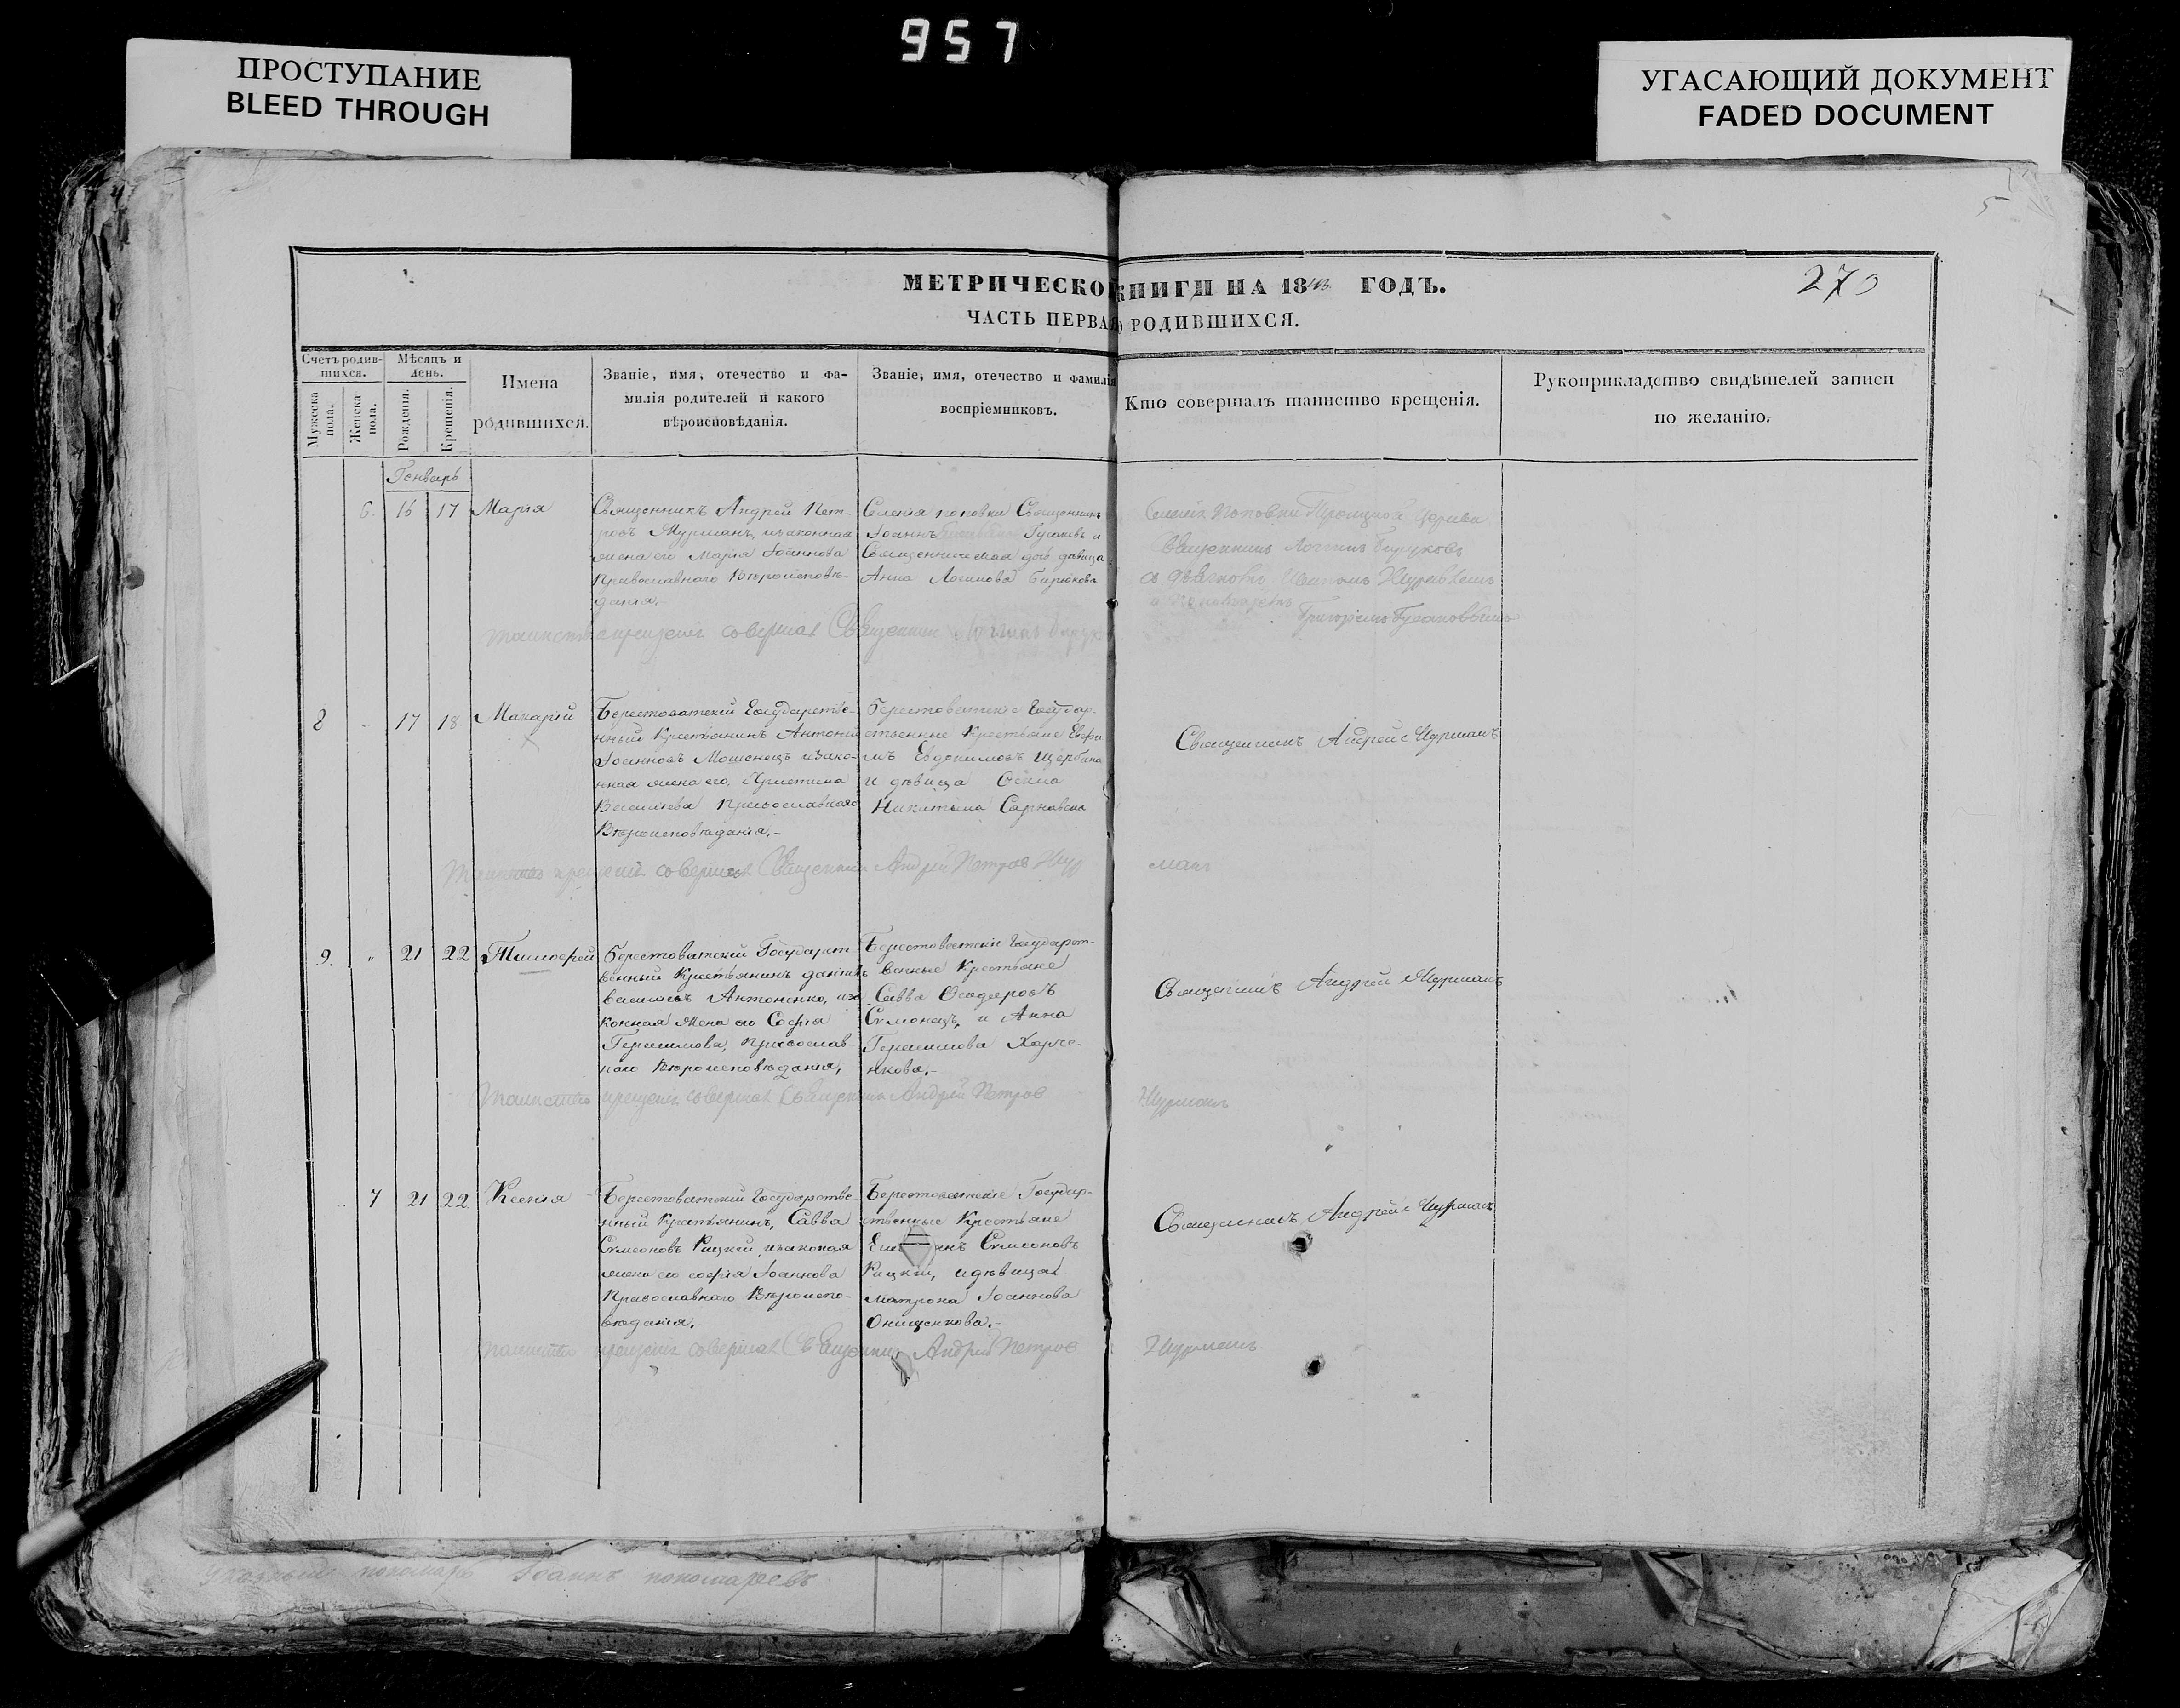 957
ПРОСТУПАНИЕ
BLEED THROUGH
УГАСАЮЩИЙ ДОКУМЕНТ
FADED DOCUMENT
270
МЕТРИЧЕСКО КНИГИ НА 1843 ГОДЪ.
ЧАСТЬ ПЕРВАЯ О РОДИВШИХСЯ.
Счетъ родив-
шихся.
Мѣсяцъ и
день.
Мужеска
пола.
Женска
пола.
Рожденія.
Крещенія.
Имена
родившихся.
Званіе, имя, отечество и фа-
милія родителей и какого
вѣроисповѣданія.
Званіе, имя, отечество и фамилія
воспріемниковъ.
Кто совершалъ таинство крещенія.
Рукоприкладство свидѣтелей записи
по желанію.
Генварь
6. 16 17 Марія
Священникъ Андрей Пет-
ровъ Мурманъ, изаконная
жена его Марія Іоаннова
Православнаго Вѣроисповѣ-
данія.-
Селенія поповки Священникъ
Іоаннъ Гусаковъ и
Священническая дѣвица
Анна Логинова Бирюкова
Поповки Троицкой Церкви
Священникъ Логгинъ Бирюковъ
и пономаремъ
Григоріемъ
таинство крещенія совершал Священник Логгин
8 17 18 Макарій
Берестоватскій Государстве-
нный Крестьянинъ Антоній
Іоанновъ Мошонецъ изако-
нная жена его, Христина
Василіева Православнаго
Вѣроисповѣданія.-
Берестоватскіе Государ-
ственные Крестьяне Ефи-
мъ Евдокимовъ Щербина
и дѣвица
Никитина
Священникъ Андрей Мурманъ
Таинство крещенія совершал Священник Андрей Петров Мур ман
9. " 21 22 Тимофей
Берестоватскій Государст
венный Крестьянинъ Даніилъ
Василіевъ Антоненко, иза
конная жена его Софія
Герасимова, Православ-
наго Вѣроисповѣданія,
Берестоватскіе Государст-
венные Крестьяне
Савва Ѳеодоровъ
и Анна
Герасимова Харче-
нкова.-
Священникъ Андрей Мурманъ
Таинство крещенія совершал Священник Андрей Петров Мурманъ
7 21 22 Ксенія
Берестоватскій Государстве-
нный Крестьянинъ, Савва
Симеоновъ Рицкій, изаконая
жена его софія Іоаннова
Православнаго Вѣроиспо-
вѣданія.-
Берестоватскіе Государ-
ственные Крестьяне
Симеоновъ
Рицкій, идѣвица
матрона Іоаннова
Онищенкова.-
Священникъ Андрей Мурманъ
Таинство крещенія совершал Священник Андрей Петров Мурманъ
пономарь Іоаннъ пономаревъ